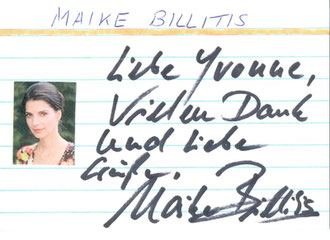 MAIKE BILLITIS
Liebe Yvonne,
Vielen Dank
und liebe
Grüße,
Maike Billitis